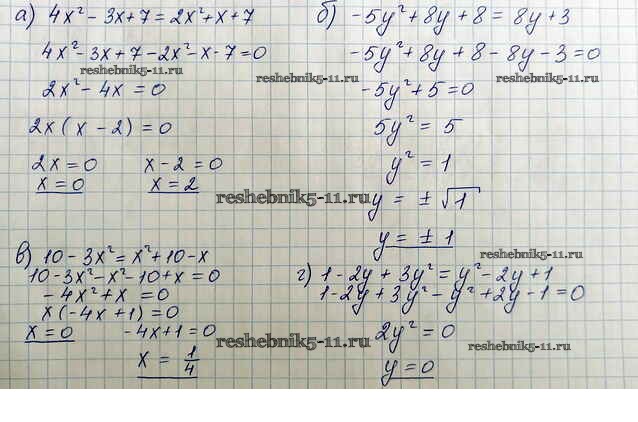 а) 4x² - 3x + 7 = 2x² + x + 7
4x² - 3x + 7 - 2x² - x - 7 = 0
reshebnik5-11.ru
2x² - 4x = 0
2x (x - 2) = 0
2x = 0 x - 2 = 0
x = 0 x = 2
б) -5y² + 8y + 8 = 8y + 3
-5y² + 8y + 8 - 8y - 3 = 0
reshebnik5-11.ru
reshebnik5-11.ru
-5y² + 5 = 0
reshebnik5-11.ru
5y² = 5
y² = 1
reshebnik5-11.ru
y = ± √1
y = ± 1
в) 10 - 3x² = x² + 10 - x
10 - 3x² - x² - 10 + x = 0
- 4x² + x = 0
x (-4x + 1) = 0
x = 0 -4x + 1 = 0
x = 1/4
reshebnik5-11.ru
г) 1 - 2y + 3y² = y² - 2y + 1
1 - 2y + 3y² - y² + 2y - 1 = 0
reshebnik5-11.ru
2y² = 0
reshebnik5-11.ru
y = 0